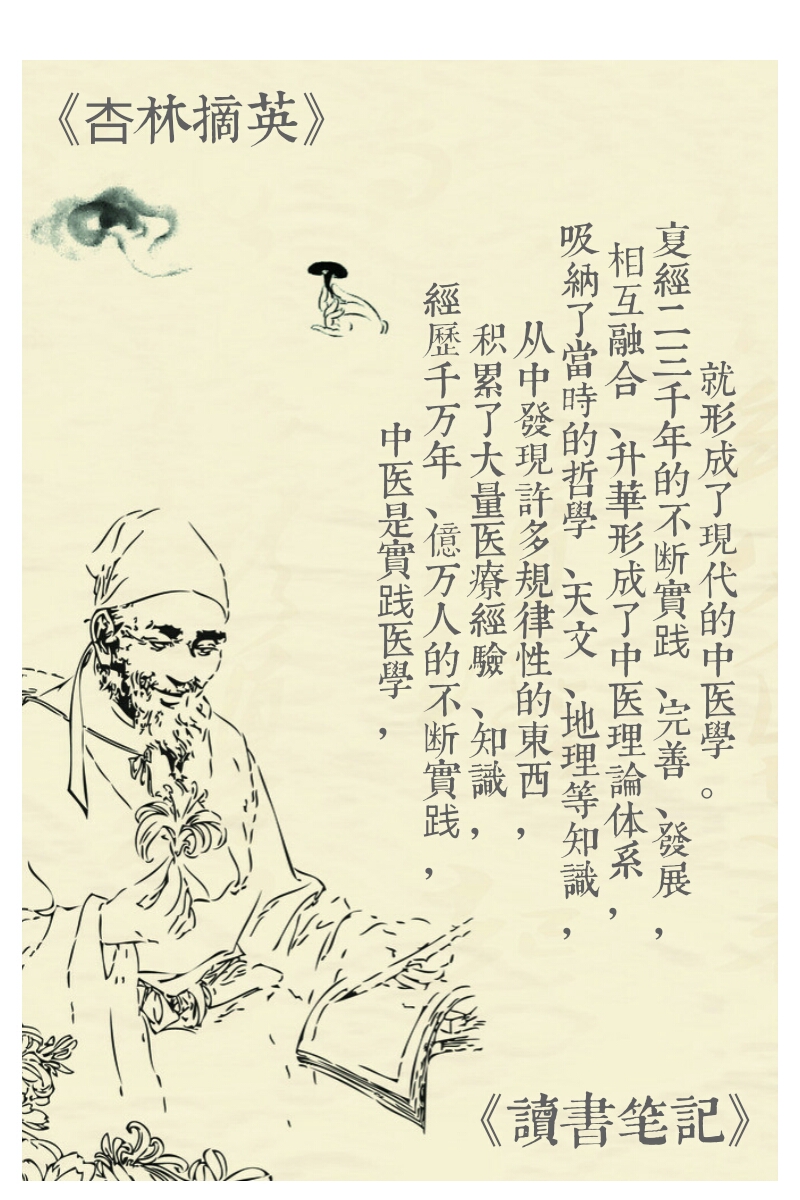 《杏林摘英》
中医是實践医學，
經歷千万年、億万人的不断實践，
积累了大量医療經驗、知識，
从中發現許多規律性的東西，
吸納了當時的哲學、天文、地理等知識，
相互融合、升華形成了中医理論体系，
复經二三千年的不断實践、完善、發展，
就形成了現代的中医學。
《讀書笔記》